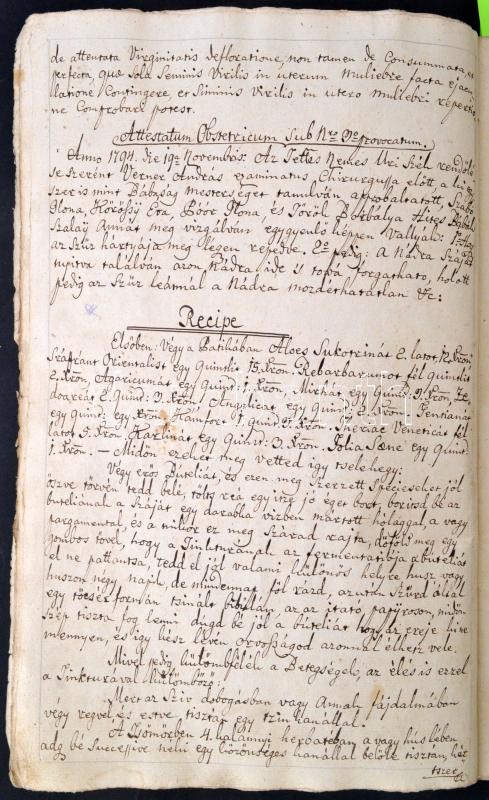 de attentata Virginitatis defloratione, non tamen de Consummata, et
perfecta, quæ sola Seminis Virilis in uterum muliebre facta ejacu
llatione Contingere, et Siminis Virilis in utero muliebri reperitio
ne Comprobari potest.
Attestatum Obstetricum Sub Nro 9o provocatum.
Anno 1794. die 19a Novembris: Az Tettes Nemes Uri Szék rendölé
se szerént Verner András examinatus Chirurgussa előtt, a
szeris mint Bábaság mesterséget tanulván approbaltatott, Szabó
Ilona, Kőrössy Eva, Boór Ilona, és Török Borbálya Hites Bábák
Szalay Annát meg vizgálván egygyenlő képpen Vallyák: 1o Hogy
az Szüz hártyája meg legyen repedve. 2o pedig: A Nádra Száját
nyitva találván azon Nádra ide is tova forgatható, holott
pedig az Szüz leánnál a Nádra mozdéthatatlan &c:
Recipe
Elsőben: Végy a Patikában Aloes Sukotrinát 2. latot, 12. Xron
Sráfránt Orientalist egy Quintlit 15. Xron. Rebarbarumot fél quintlit
2. Xron, Agaricumát egy Quint: 1. Xron. Mirhát egy Quint: 9. Xron, Ze
doareát 2. Quint: 3. Xron. Angelicát egy Quint: 2. Xron. Gentianát
egy Quint: egy Xron. Kámfort 1. quint Xron. Theriac Veneticát fél
latot 5. Xron. Karlinát egy Quint: 3. Xron. Folia Sene egy Quint:
1. Xron. – Midön ezeket meg vetted igy tselekegy:
Végy erös Buteliát, és ezen meg szerzett Specieseket jól
öszve törvén tedd belé, tölts reá egy itze jó éget bort, boritsd bé az
buteliának a Száját egy darabka vizben mártott hólaggal a vagy
pargamentál, és a mikor ez meg Szárad rajta, döföld meg egy
gombos tövel, hogy a Tinkturának az fermentatiója a buteliát
el ne pattantsa, tedd el jól valami külömös helyre husz vagy
huszon négy napik, de mindennap föl rázd, azután szürd által
egy tölcsér formán tsinált bibullán az az itató papyroson, midön
szép tiszta fog lenni dugd bé jól a buteliát hogy az ereje ki ne
mennyen, és igy kész lévén orvosságod azonnal élhetz vele.
Mivel pedig külömbfélék a Betegségek, az élés is ezzel
a Tinkturával külömböző:
Mert az Sziv dobogásban vagy Annak fájdalmában
végy regvel, és estve tisztán egy tzin kanállal.
A Csömörben 4. kalánnyi herbatéban a vagy hús lében
adg bé Successive neki egy közönséges kanállal belöle tisztán, két
tszer